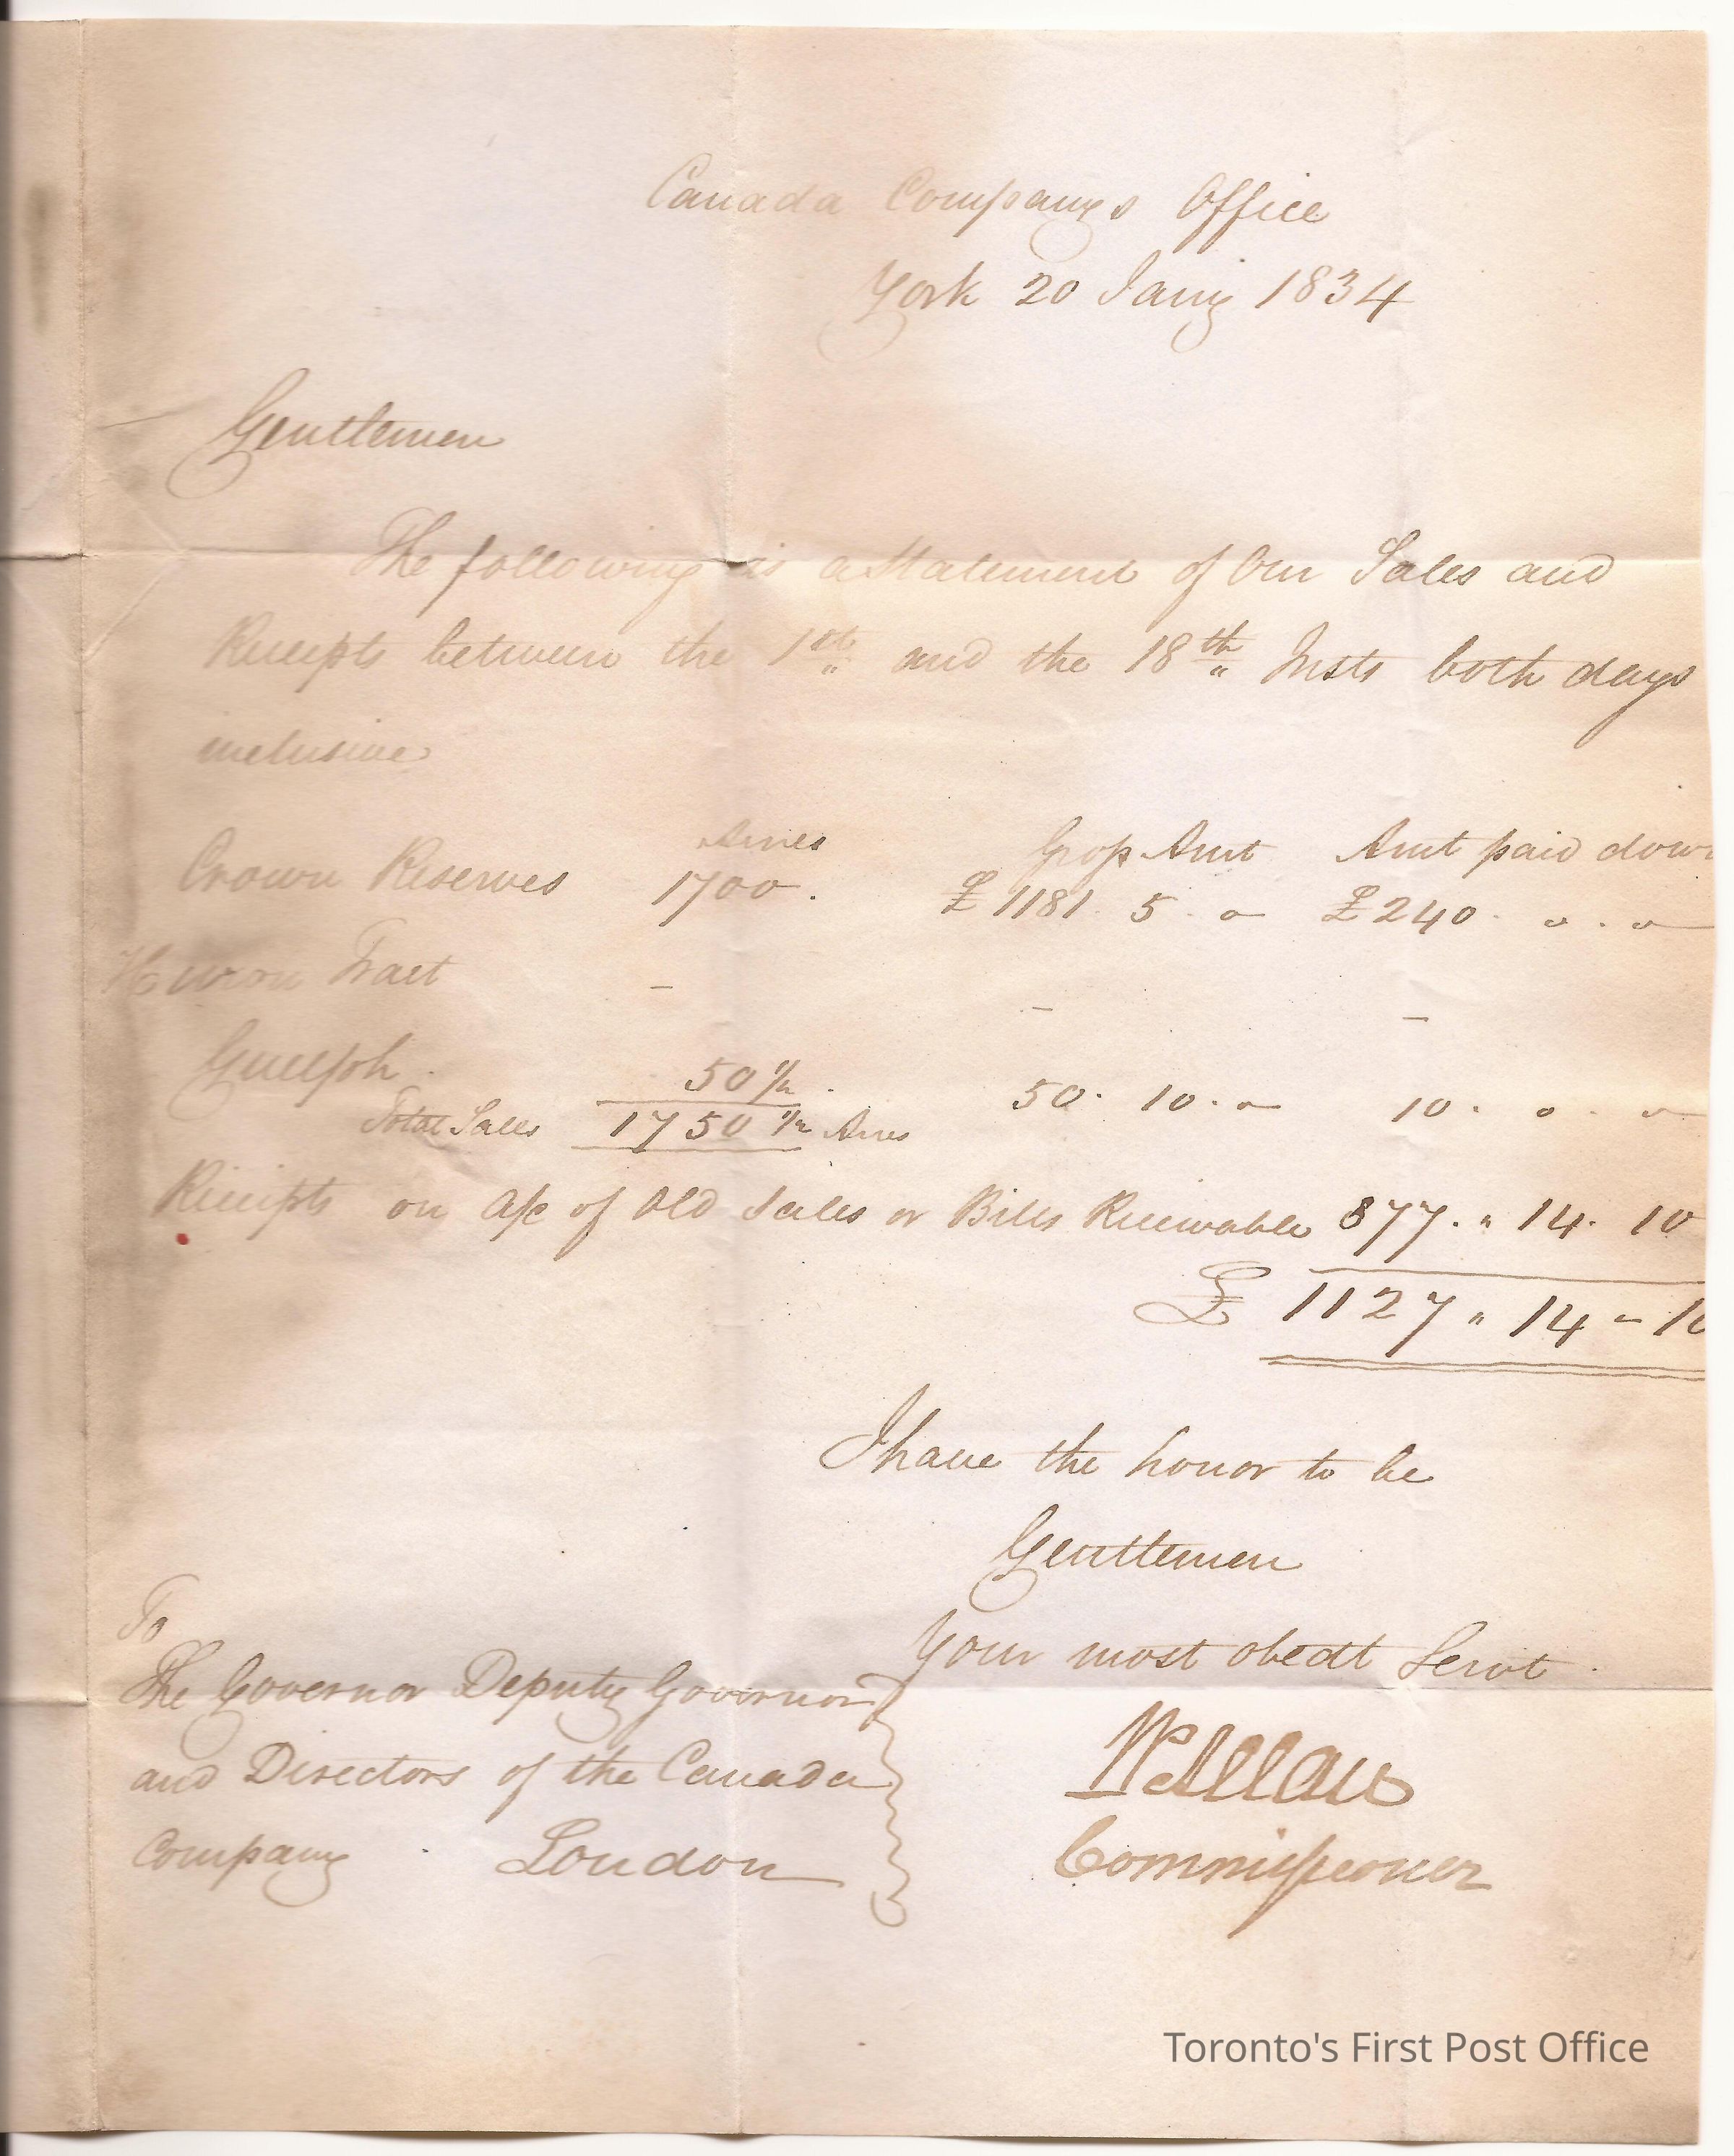 Canada Companys Office
York 20 Jany 1834
Gentlemen
The following is a Statement of Our Sales and
Receipts between the 1st and the 18th Insts both days
inclusive
Acres Gross Amt Amt paid down
Crown Reserves 1700. £1181. 5. 0 £240. 0. 0
Huron Tract - - -
Guelph. 50 1/2. 50. 10. 0 10. 0. 0
Total Sales 1750 1/2 Acres
Receipts on a/c of Old Sales or Bills Receivable 877. " 14. 10
£ 1127 " 14 - 10
I have the honor to be
Gentlemen
Your most obedt Servt.
To
The Governor Deputy Governor
and Directors of the Canada
Company. London
W Allan
Commissioner
Toronto's First Post Office